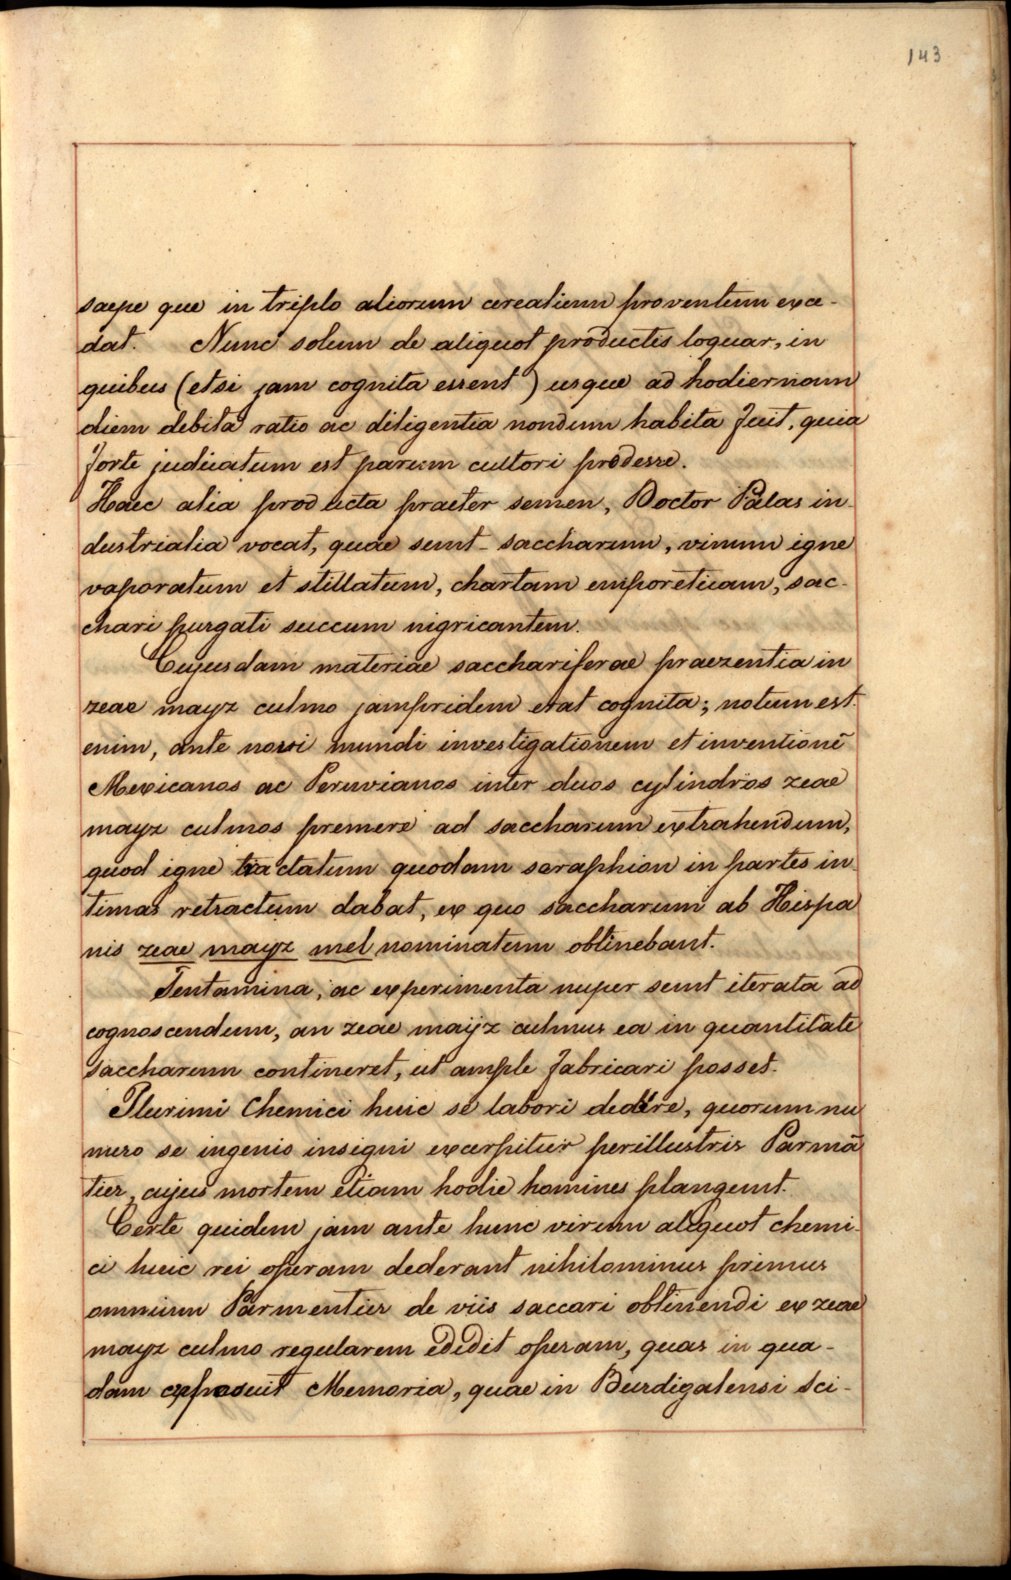 143
saepe que in triplo aliorum cerealium proventum exce-
dat. Nunc solum de aliquot productis loquar, in
quibus (etsi jam cognita essent) usque ad hodiernam
diem debita ratio ac diligentia nondum habita fuit, quia
forte judicatum est parum cultori prodesse.
Haec alia producta praeter semen, Doctor Palas in-
dustrialia vocat, quae sunt - saccharum, vinum igne
vaporatum et stillatum, chartam emporeticam, sac-
chari purgati succum nigricantem.
Cujusdam materiae sacchariferae praezentia in
zeae mayz culmo jampridem erat cognita; notum est.
enim, ante novi mundi investigationem et inventionē
Mexicanos ac Peruvianos inter duos cylindros zeae
mayz culmos premere ad saccharum extrahendum,
quod igne tractatum quodam seraphion in partes in-
timas retractum dabat, ex quo saccharum ab Hispa
nis zeae mayz mel nominatum obtinebant.
Tentamina, ac experimenta nuper sunt iterata ad
cognoscendum, an zeae maÿz culmus ea in quantitate
saccharum contineret, ut ample fabricari posset.
Plurimi Chemici huic se labori dedere, quorum nu
mero se ingenio insigni excerpitur perillustris Parmā
tier, cujus mortem etiam hodie homines plangunt.
Certe quidem jam ante hunc virum aliquot chemi-
ci huic rei operam dederant nihilominus primus
omnium Parmentier de viis saccari obtinendi ex zeae
mayz culmo regularem edidit operam, quas in qua-
dam exposuit Memoria, quae in Burdigalensi Sci-